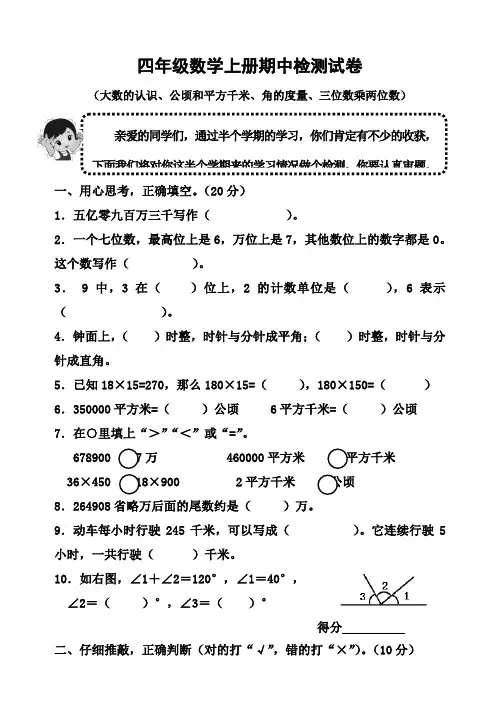 四年级数学上册期中检测试卷
（大数的认识、公顷和平方千米、角的度量、三位数乘两位数）
亲爱的同学们，通过半个学期的学习，你们肯定有不少的收获，
下面我们将对你这半个学期来的学习情况做个检测，你要认真审题，
一、用心思考，正确填空。（20分）
1．五亿零九百万三千写作（　　　　）。
2．一个七位数，最高位上是6，万位上是7，其他数位上的数字都是0。
这个数写作（　　　　）。
3． 9 中，3 在（　　）位上，2 的计数单位是（　　　），6 表示
（　　　　　　）。
4．钟面上，（　　）时整，时针与分针成平角；（　　）时整，时针与分
针成直角。
5．已知18×15=270，那么180×15=（　　　），180×150=（　　　）
6．350000平方米=（　　）公顷　　6平方千米=（　　）公顷
7．在○里填上“＞”“＜”或“=”。
678900 ○7万　　460000平方米 ○平方千米
36×450 ○18×900　　2平方千米 ○公顷
8．264908省略万后面的尾数约是（　　）万。
9．动车每小时行驶245千米，可以写成（　　　　）。它连续行驶5
小时，一共行驶（　　　）千米。
10．如右图，∠1＋∠2＝120°，∠1＝40°，
∠2＝（　　）°，∠3＝（　　）°
3 2 1
得分
二、仔细推敲，正确判断（对的打“√”，错的打“×”）。（10分）